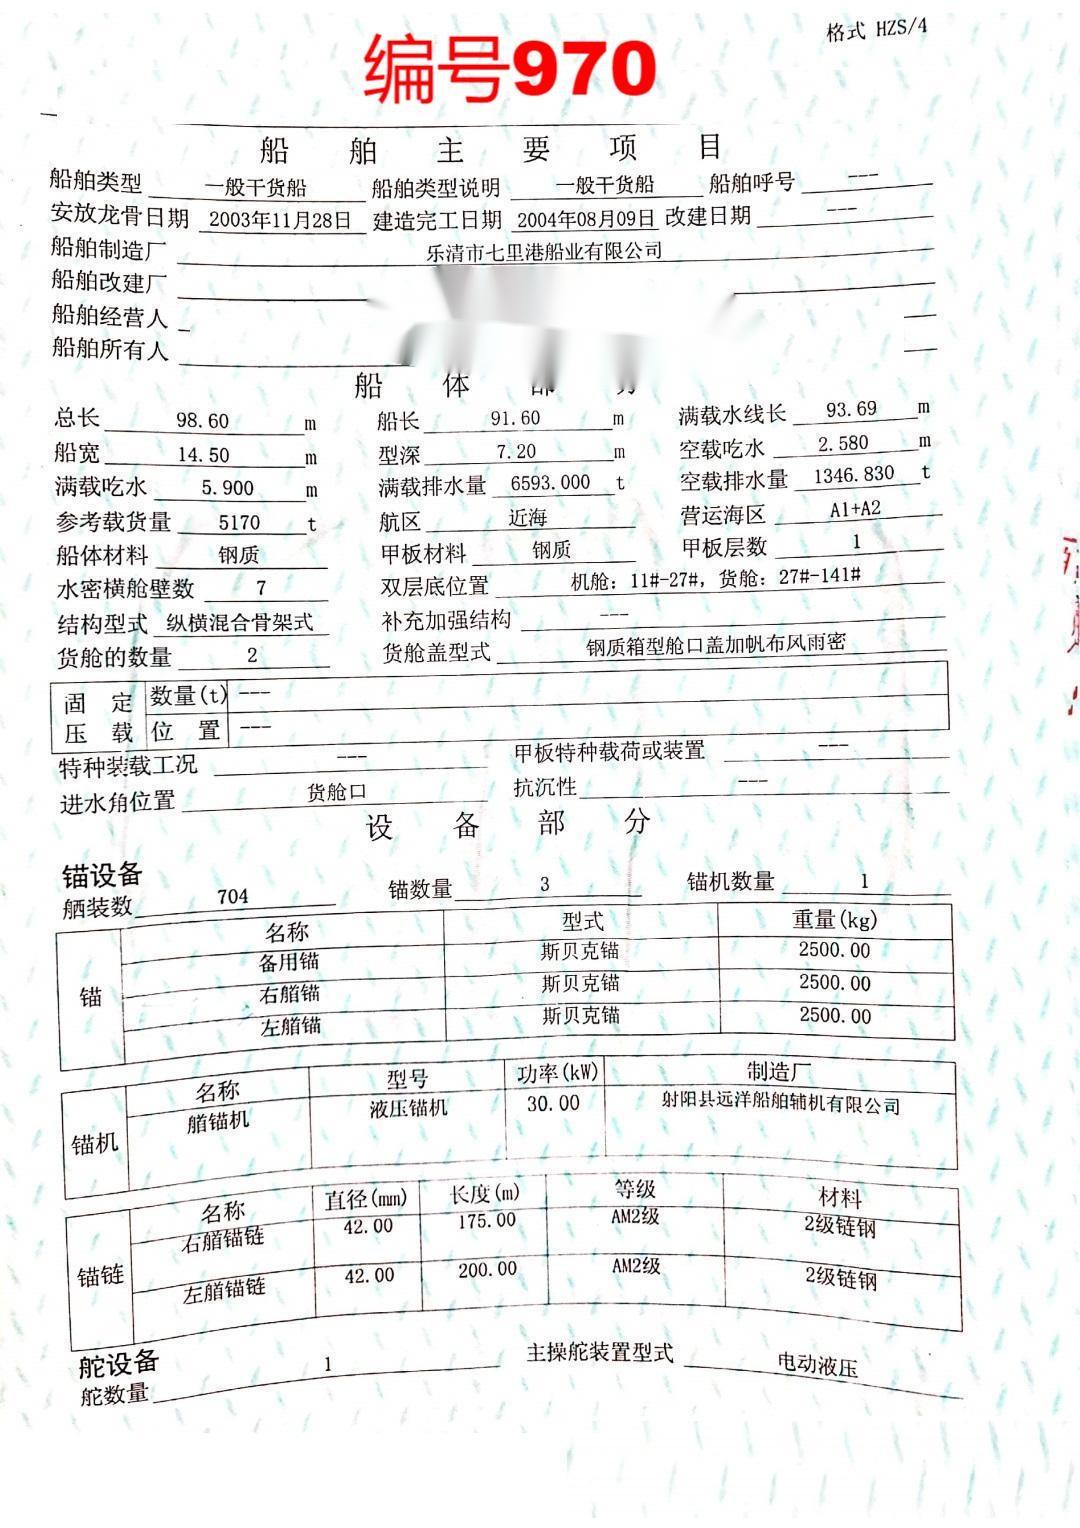 格式 HZS/4
编号970
船舶主要项目
船舶类型 一般干货船 船舶类型说明 一般干货船 船舶呼号 ---
安放龙骨日期 2003年11月28日 建造完工日期 2004年08月09日 改建日期 ---
船舶制造厂 乐清市七里港船业有限公司
船舶改建厂
船舶经营人
船舶所有人
船体部分
总长 98.60 m 船长 91.60 m 满载水线长 93.69 m
船宽 14.50 m 型深 7.20 m 空载吃水 2.580 m
满载吃水 5.900 m 满载排水量 6593.000 t 空载排水量 1346.830 t
参考载货量 5170 t 航区 近海 营运海区 A1+A2
船体材料 钢质 甲板材料 钢质 甲板层数 1
水密横舱壁数 7 双层底位置 机舱：11#-27#，货舱：27#-141#
结构型式 纵横混合骨架式 补充加强结构 ---
货舱的数量 2 货舱盖型式 钢质箱型舱口盖加帆布风雨密
固定 数量(t) ---
压载 位置 ---
特种装载工况 --- 甲板特种载荷或装置 ---
进水角位置 货舱口 抗沉性 ---
设备部分
锚设备
舾装数 704 锚数量 3 锚机数量 1
锚 名称 型式 重量(kg)
备用锚 斯贝克锚 2500.00
右艏锚 斯贝克锚 2500.00
左艏锚 斯贝克锚 2500.00
锚机 名称 型号 功率(kW) 制造厂
艏锚机 液压锚机 30.00 射阳县远洋船舶辅机有限公司
锚链 名称 直径(mm) 长度(m) 等级 材料
右艏锚链 42.00 175.00 AM2级 2级链钢
左艏锚链 42.00 200.00 AM2级 2级链钢
舵设备
舵数量 1 主操舵装置型式 电动液压